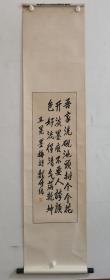 吾家洗硯池頭樹个个花
開淡墨痕不要人誇顏
色好清氣滿乾坤
王冕墨梅詩